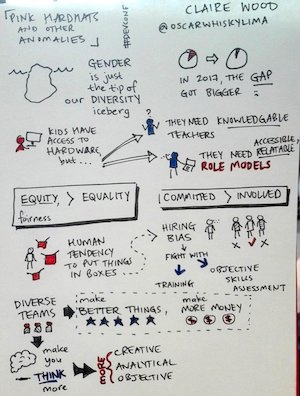 "PINK HARDHATS
AND OTHER
ANOMALIES"
#DEVCONF
CLAIRE WOOD
@OSCARWHISKYLIMA
GENDER
is just
the tip of
our DIVERSITY
iceberg
IN 2017, THE GAP
GOT BIGGER :(
KIDS HAVE
ACCESS TO
HARDWARE,
but...
THEY NEED KNOWLEDGABLE
TEACHERS
ACCESSIBLE,
RELATABLE
THEY NEED
ROLE MODELS
EQUITY > EQUALITY
fairness
COMMITTED > INVOLVED
HUMAN
TENDENCY
TO PUT THINGS
IN BOXES
HIRING
BIAS
FIGHT WITH
TRAINING
OBJECTIVE
SKILLS
ASSESSMENT
DIVERSE
TEAMS
make
BETTER THINGS,
make
MORE MONEY
make
you
THINK
more
MORE
CREATIVE
ANALYTICAL
OBJECTIVE